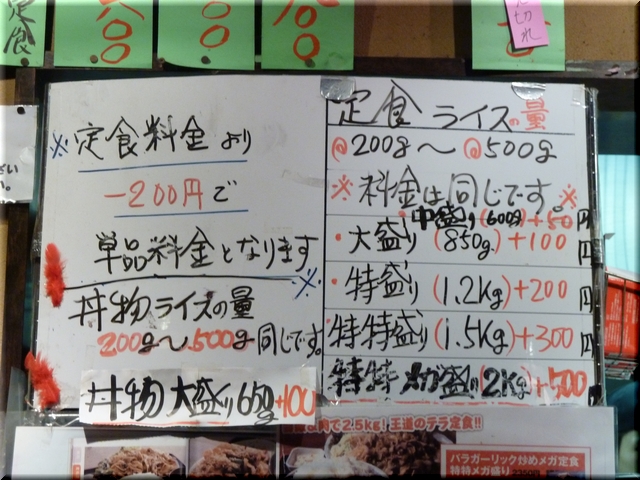 定食
八〇〇
切れ
※定食料金より
-200円で
単品料金となります
※
丼物ライスの量
200g〜500g同じです。
丼物大盛り650g+100
定食ライスの量
@200g〜@500g
※料金は同じです。※
・中盛り(600g)+50円
・大盛り(850g)+100円
・特盛り(1.2Kg)+200円
・特特盛り(1.5Kg)+300円
特特メガ盛り(2Kg)+500
で2.5kg!王道のテラ定食!!
バラガーリック炒めメガ定食
特特メガ盛り